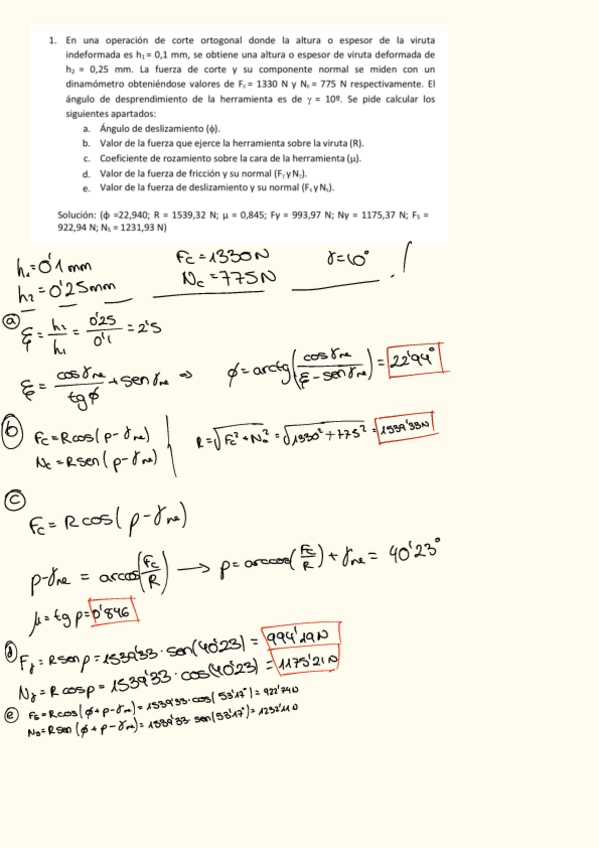 1. En una operación de corte ortogonal donde la altura o espesor de la viruta
indeformada es h₁ = 0,1 mm, se obtiene una altura o espesor de viruta deformada de
h₂ = 0,25 mm. La fuerza de corte y su componente normal se miden con un
dinamómetro obteniéndose valores de Fc = 1330 N y Nc = 775 N respectivamente. El
ángulo de desprendimiento de la herramienta es de γ = 10º. Se pide calcular los
siguientes apartados:
a. Ángulo de deslizamiento (ϕ).
b. Valor de la fuerza que ejerce la herramienta sobre la viruta (R).
c. Coeficiente de rozamiento sobre la cara de la herramienta (μ).
d. Valor de la fuerza de fricción y su normal (Fγ y Nγ).
e. Valor de la fuerza de deslizamiento y su normal (Fs y Ns).
Solución: (ϕ =22,940; R = 1539,32 N; μ = 0,845; Fγ = 993,97 N; Nγ = 1175,37 N; Fs =
922,94 N; Ns = 1231,93 N)
h₁=0'1 mm Fc=1330N γ=10°
h₂=0'25mm Nc=775N
a ξ = h₂/h₁ = 0'25/0'1 = 2'5
ξ = cosγne/tgϕ + senγne ⇒ ϕ = arctg(cosγne/(ξ - senγne)) = 22'94°
b Fc=Rcos(ρ-γne)
Nc=Rsen(ρ-γne) R=√(Fc²+Nc²) = √(1330²+775²) = 1539'33N
c
Fc=Rcos(ρ-γne)
ρ-γne = arccos(Fc/R) → ρ=arccos(Fc/R)+γne = 40'23°
μ=tgρ=0'846
d Fγ=Rsenρ=1539'33·sen(40'23)=994'19N
Nγ=Rcosρ=1539'33·cos(40'23)=1175'21N
e Fs=Rcos(ϕ+ρ-γne)=1539'33·cos(53'17°)=922'74N
Ns=Rsen(ϕ+ρ-γne)=1539'33·sen(53'17°)=1232'11N